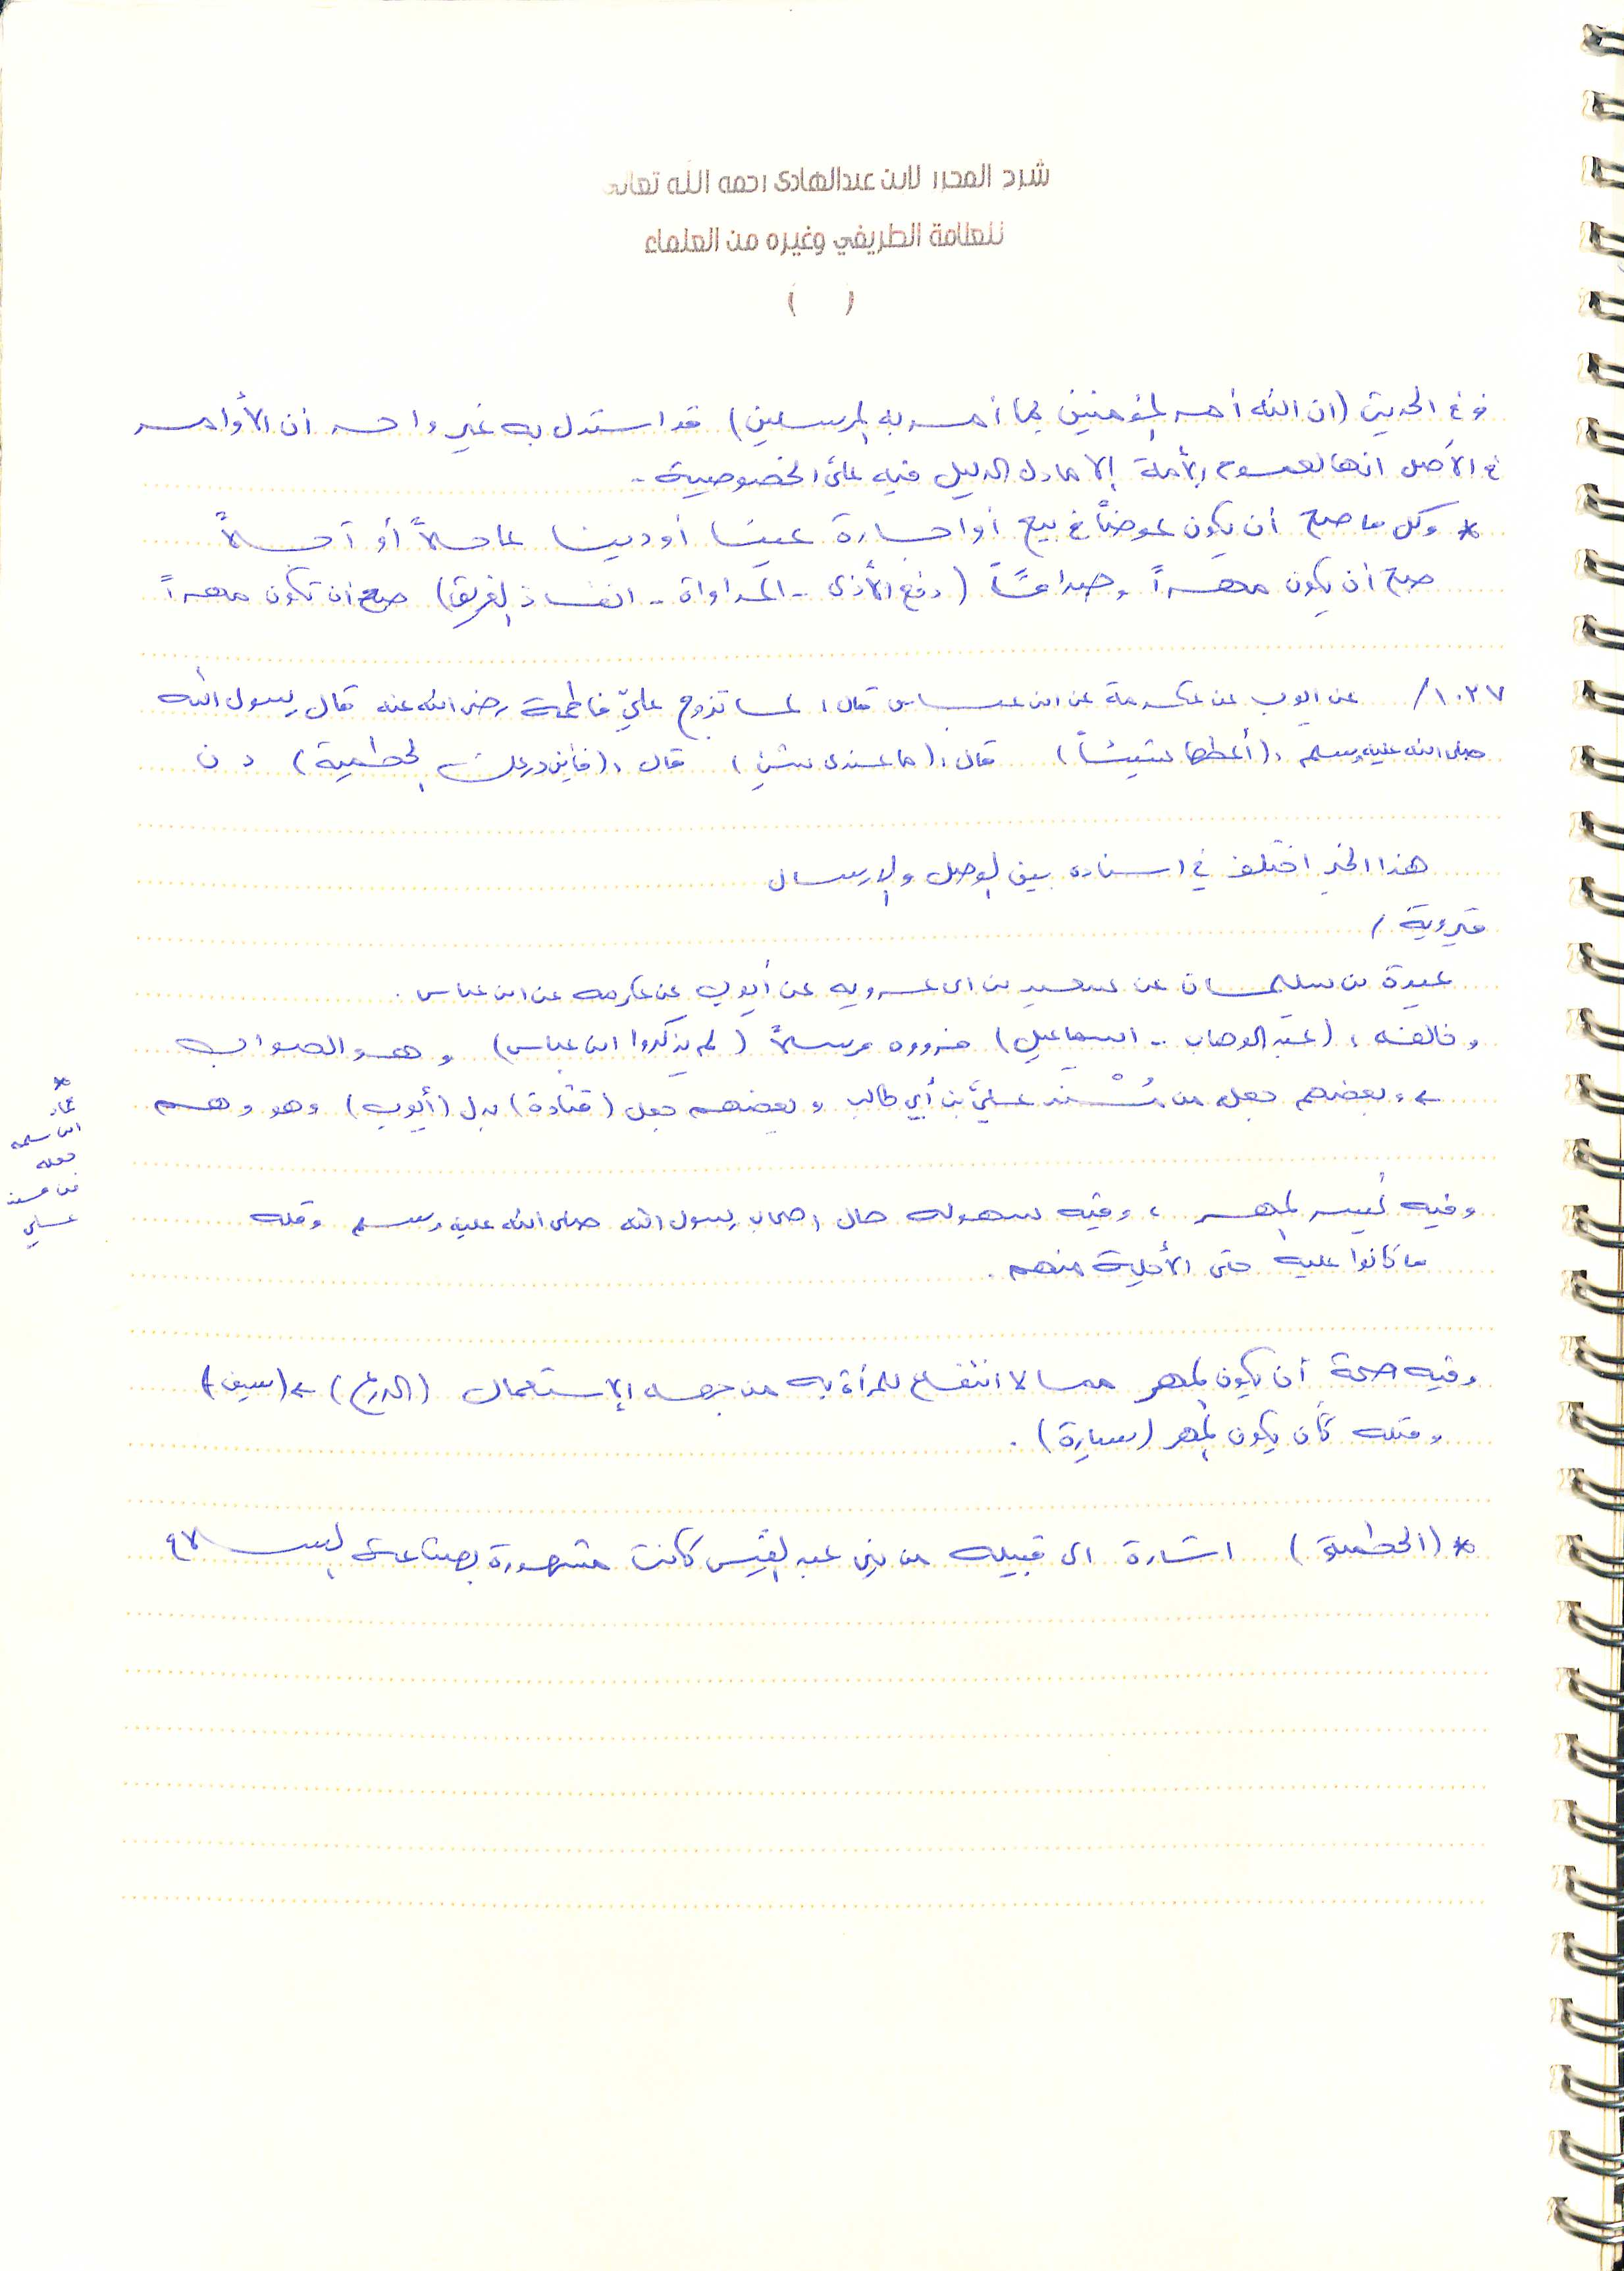 شرح المحرر لابن عبدالهادي رحمه الله تعالى
للعلامة الطريفي وغيره من العلماء
( )
ففي الحديث (ان الله أمر المؤمنين بما أمر به المرسلين) قد استدل به غير واحد أن الأوامر
في الأصل انها لعموم الأمة إلا ما دل الدليل فيه على الخصوصية -
* وكل ما صح أن يكون عوضاً في بيع أو اجارة عيناً أو ديناً عاجلاً أو آجلاً
صح أن يكون مهراً وصداقاً (دفع الأذى - المداواة - انقاذ الغريق) صح ان تكون مهراً
١٠٢٧ / عن ايوب عن عكرمة عن ابن عباس قال: لما تزوج عليّ فاطمة رضي الله عنه قال رسول الله
صلى الله عليه وسلم : (أعطها شيئاً) قال : (ما عندي شئ) قال : (فأين درعك الحطمية) د ن
هذا الخبر اختلف في اسناده بين الوصل والإرسال
فيرويه /
عبدة بن سليمان عن سعيد بن ابي عروبه عن أيوب عن عكرمه عن ابن عباس .
وخالفه : (عبد الوهاب - اسماعيل) فرووه مرسلاً (لم يذكروا ابن عباس) وهو الصواب
← وبعضهم جعله من مُسْند عليّ بن أبي طالب وبعضهم جعل (قتادة) بدل (أيوب) وهو وهم
* حمّاد
ابن سلمه
جعله
من مسند
علي
وفيه تيسير المهر ، وفيه سهوله حال اصحاب رسول الله صلى الله عليه وسلم وقله
ما كانوا عليه حتى الأجلة منهم .
وفيه صحة أن يكون المهر مما لا انتفاع للمرأة به من جهه الإستعمال (الدرع) ← (سيف)
ومثله كأن يكون المهر (سيارة) .
* (الحطمية) اشارة الى قبيله من بني عبد القيس كانت مشهورة بصناعة السلاح